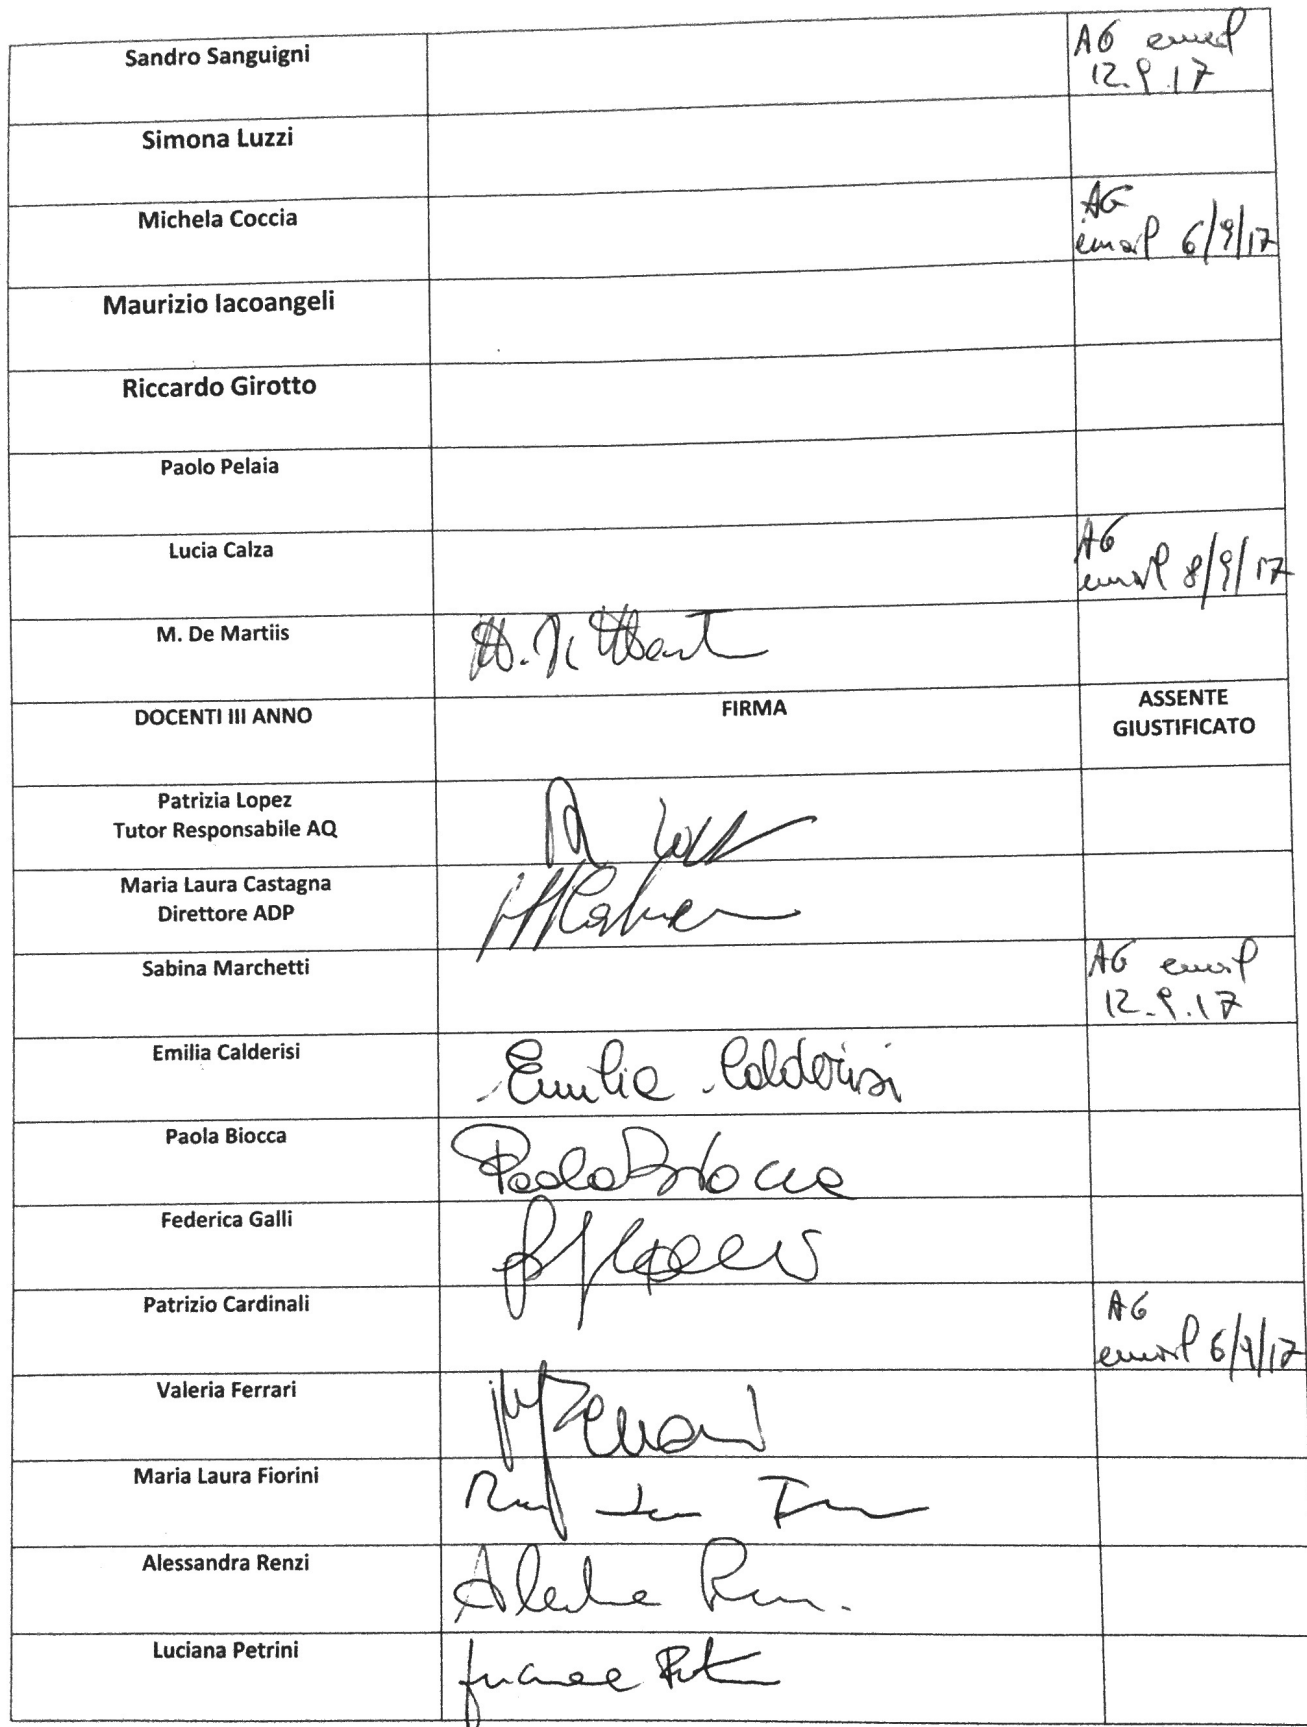 Sandro Sanguigni
AG email
12.9.17
Simona Luzzi
Michela Coccia
AG
email 6/9/17
Maurizio Iacoangeli
Riccardo Girotto
Paolo Pelaia
Lucia Calza
AG
email 8/9/17
M. De Martiis
DOCENTI III ANNO
FIRMA
ASSENTE
GIUSTIFICATO
Patrizia Lopez
Tutor Responsabile AQ
Maria Laura Castagna
Direttore ADP
Sabina Marchetti
AG email
12.9.17
Emilia Calderisi
Emilia Calderisi
Paola Biocca
Paola Biocca
Federica Galli
Patrizio Cardinali
AG
email 6/9/17
Valeria Ferrari
Maria Laura Fiorini
Alessandra Renzi
Luciana Petrini